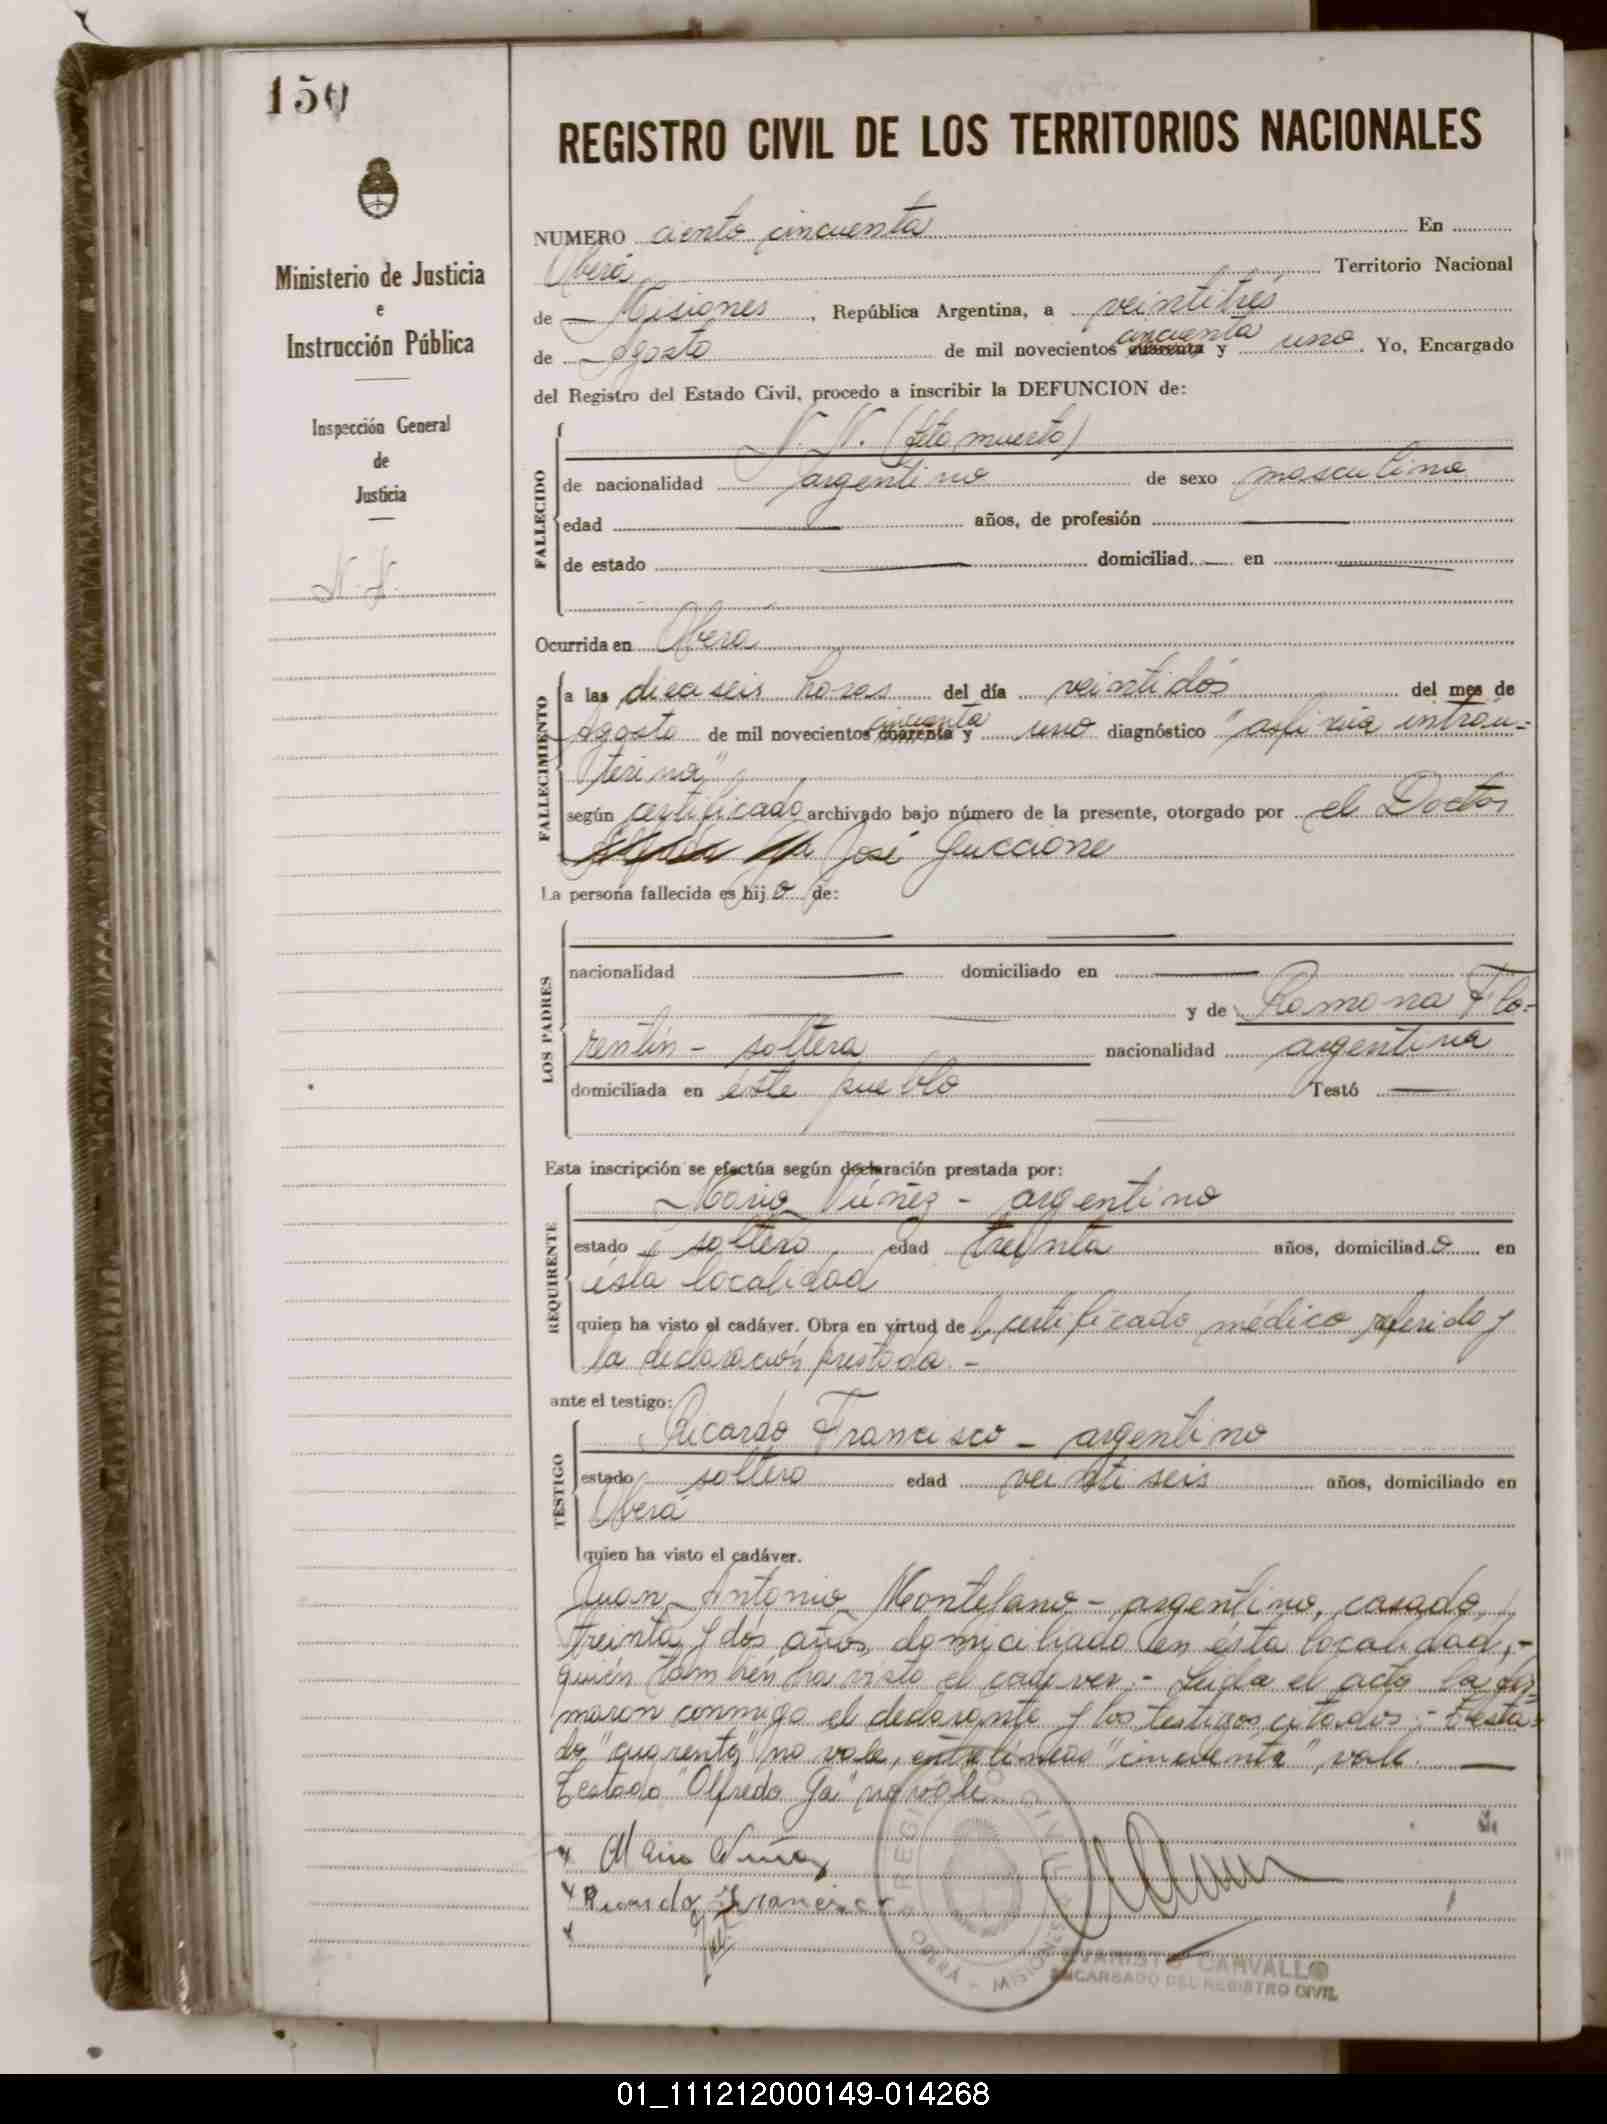 150
REGISTRO CIVIL DE LOS TERRITORIOS NACIONALES
Ministerio de Justicia
e
Instrucción Pública
Inspección General
de
Justicia
N. N.
NUMERO ciento cincuenta En
Oberá Territorio Nacional
de Misiones, República Argentina, a veintitrés
cincuenta
de Agosto de mil novecientos cuarenta y uno. Yo, Encargado
del Registro del Estado Civil, procedo a inscribir la DEFUNCION de:
FALLECIDO
N. N. (feto muerto)
de nacionalidad argentino de sexo masculino
edad años, de profesión
de estado domiciliad en
Ocurrida en Oberá
FALLECIMIENTO
a las dieciseis horas del día veintidós del mes de
cincuenta
Agosto de mil novecientos cuarenta y uno diagnóstico "asfixia intrau-
terina"
según certificado archivado bajo número de la presente, otorgado por el Doctor
Alfredo Ga José Guccione
La persona fallecida es hijo de:
LOS PADRES
nacionalidad domiciliado en
y de Ramona Flo-
rentín - soltera nacionalidad argentina
domiciliada en éste pueblo Testó
Esta inscripción se efectúa según declaración prestada por:
REQUIRENTE
Mario Núñez - argentino
estado soltero edad treinta años, domiciliado en
ésta localidad
quien ha visto el cadáver. Obra en virtud del certificado médico referido y
la declaración prestada.-
ante el testigo:
TESTIGO
Ricardo Francisco - argentino
estado soltero edad veintiseis años, domiciliado en
Oberá
quien ha visto el cadáver.
Juan Antonio Montefano - argentino, casado,
treinta y dós años, domiciliado en ésta localidad,-
quién también ha visto el cadáver.- Leída el acta la fir-
maron conmigo el declarante y los testigos citados.- Testa-
do "cuarenta" no vale, entrelíneas "cincuenta", vale.
Testado "Alfredo Ga" no vale.
Mario Nuñez
Ricardo Francisco
REGISTRO CIVIL
OBERÁ - MISIONES
EVARISTO CARVALLO
ENCARGADO DEL REGISTRO CIVIL
01_111212000149-014268